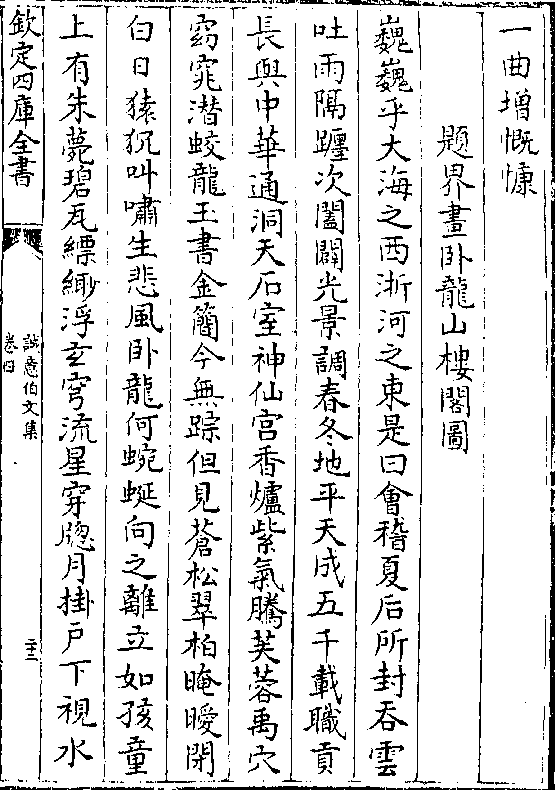 一曲增慨慷
題界畫卧龍山樓閣圖
巍巍乎大海之西浙河之東是曰會稽夏后所封吞雲
吐雨隔躔次闔闢光景調春冬地平天成五千載職貢
長與中華通洞天石室神仙宫香爐紫氣騰芙蓉禹穴
窈窕潜蛟龍玉書金簡今無踪但見蒼松翠柏晻曖閉
白日猿狖叫嘯生悲風卧龍何蜿蜒向之離立如孩童
上有朱甍碧瓦縹緲浮玄穹流星穿牎月掛户下視水
欽定四庫全書
誠意伯文集
卷四
二十三